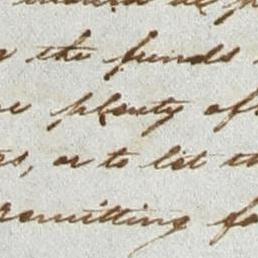 the funds
plenty of
or to let th
remitting fo